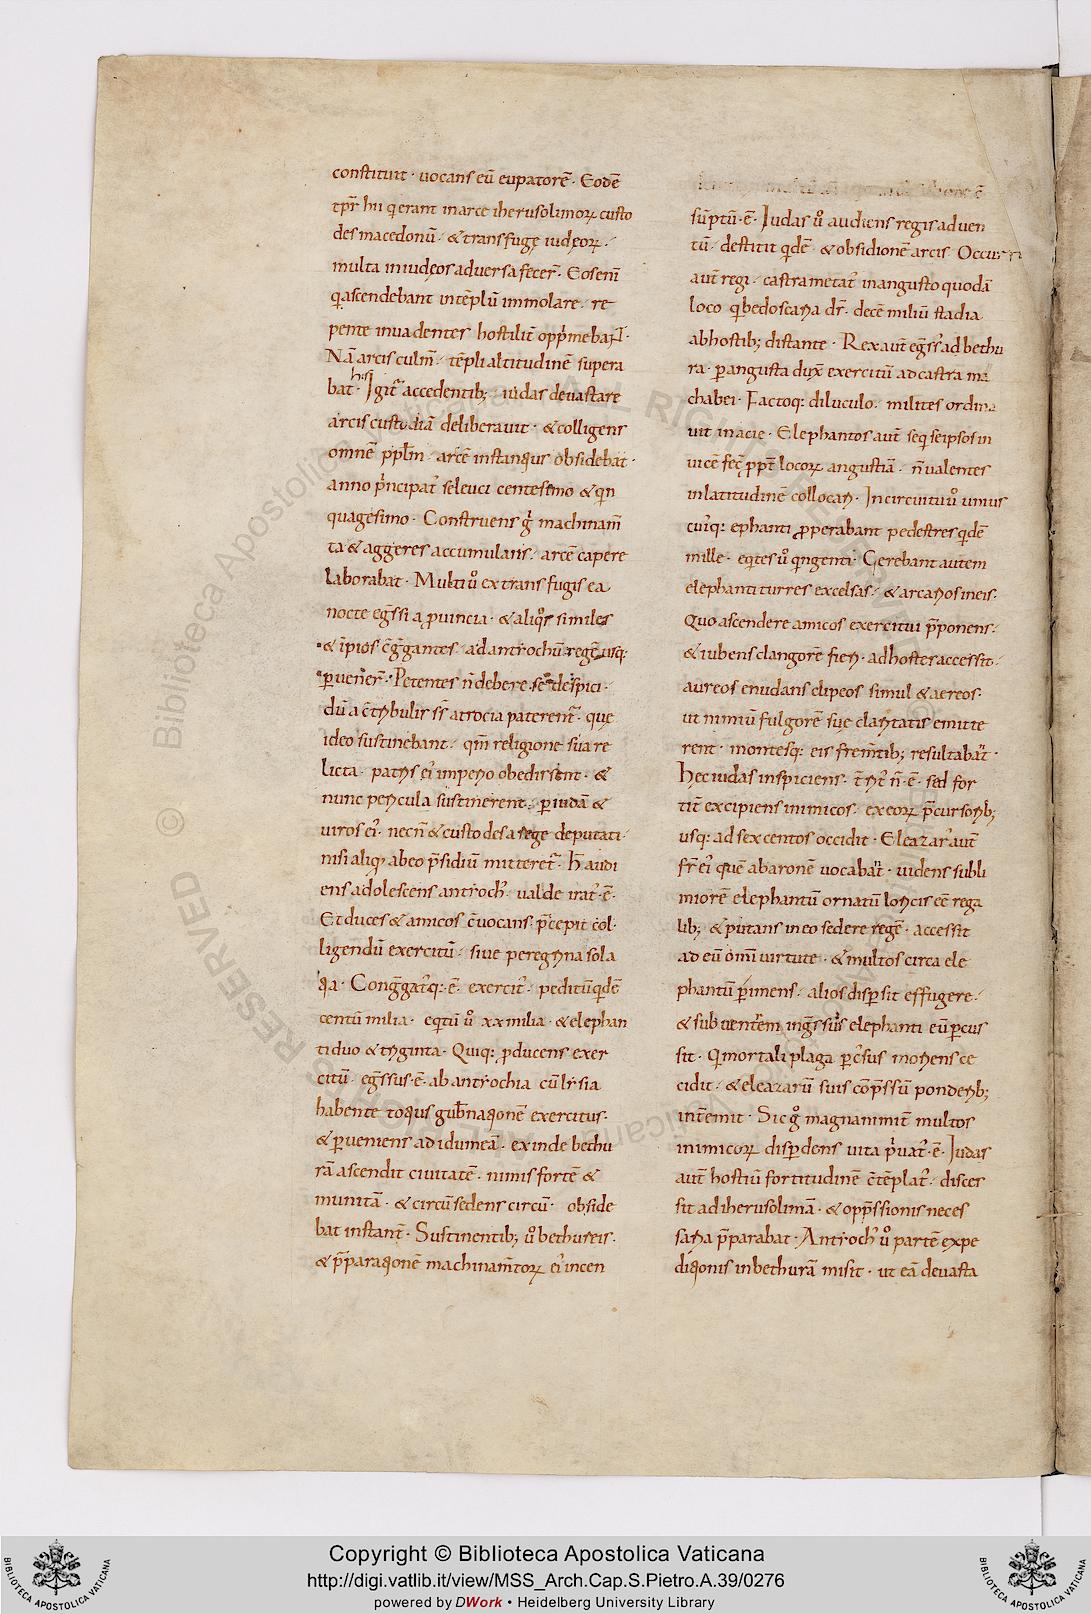 constituit · uocans eū eupatorē · Eodē
tp̄r hii q̇ erant in arce iherusolimoꝝ custo
des macedonū · & transfugę iudęoꝝ ·
multa in iudęos aduersa fecer̄ · Eos eni̅
q̇ ascendebant in tēplū immolare · re
pente inuadentes hostilit̄ opp̄mebant ·
Nā arcis culm̄ · tēpli altitudinē supera
bat · Igit̄ his accedentib; iudas deuastare
arcis custodiā deliberauit · & colligens
omnē pp̄lm · arcē instantius obsidebat ·
anno p̄ncipat᷒ seleuci centesimo & q̇n
quagesimo · Construens g̊ machinam̄
ta & aggeres accumulans · arcē capere
laborabat · Multi ů ex transfugis ea
nocte eg̅ssi a ꝓuincia · & aliq̊s similes
& īpios c̄g̅gantes · ad antiochū regē usq:
ꝑuener̄ · Petentes n̄ debere se despici ·
dū a c̄tribulib᷒ ss̄ atrocia paterent᷒ · quę
ideo sustinebant · qm̄ religione sua re
licta · patris ei᷒ imperio obedissent · &
nunc pericula sustinerent · ꝑ iudā &
uiros ei᷒ · necn̄ & custodes a sege deputati ·
nisi aliq̇ ab eo p̄sidiū mitteret᷒ · h̄ audi
ens adolescens antioch᷒ · ualde irat᷒ · ē ·
Et duces & amicos c̄uocans p̄cepit col
ligendū exercitū · siue peregrina sola
tia · Cong̅gat᷒q: · ē · exercit᷒ · peditū q̇dē
centū milia · eq̇tū ů xx milia · & elephan
ti duo & triginta · Quiq: ꝓducens exer
citū · eg̅ssus · ē · ab antiochia cū lisia
habente toti᷒ gub̄nationē exercitus ·
& ꝑueniens ad idumeā · exinde bethu
rā ascendit ciuitatē · nimis fortē &
munitā · & circū sedens circū · obside
bat instant̄ · Sustinentib; ů bethureis ·
& p̄parationē machinam̄toꝝ ei᷒ incen
sūptū · ē · Iudas ů audiens regis aduen
tū · destitit q̇dē · & obsidionē arcis · Occurr
aut̄ regi · castra metat᷒ in angusto quodā
loco q̇ bedoscaria dr̄ · decē miliū stadia
ab hostib; distante · Rex aut̄ eg̅ss᷒ ad bethu
ra · ꝑ angusta dux̄ exercitū ad castra ma
chabei · Factoq: diluculo · milites ordina
uit in acie · Elephantos aut̄ seq̇ se ipsos in
uicē fec̄ ꝓpt̄ locoꝝ angustiā · n̄ ualentes
in latitudinē collocari · In circuitu ů unius
cui᷒q: ephanti ꝓperabant pedestres q̇dē
mille · eq̇tes ů q̇ngenti · Gerebant autem
elephanti turres excelsas · & arcarios in eis ·
Quo ascendere amicos exercitui p̄ponens ·
& iubens clangorē fieri · ad hostes accessit ·
aureos enudans clipeos simul & aereos ·
ut nimiū fulgorē suę claritatis emitte
rent · montesq: eis frem̄tib; resultabant ·
Hec iudas inspiciens · t̄rit᷒ n̄ · ē · sed for
tit̄ excipiens inimicos · ex eoꝝ p̄cursorib;
usq: ad sexcentos occidit · Eleazar᷒ aut̄
fr̄ ei᷒ quē abaronē uocabant · uidens subli
miorē elephantū ornatū loricis eē rega
lib; & putans in eo sedere regē · accessit
ad eū om̄i uirtute · & multos circa ele
phantū ꝑimens · alios disꝑsit effugere ·
& sub uentrem ing̅ssus elephanti eū ꝑcus
sit · Q̇ mortali plaga ꝑc̄sus moriens ce
cidit · & eleazarū suis cōp̄ssū ponderib;
int̄emit · Sic g̊ magnanimit̄ multos
inimicoꝝ disꝑdens uita ṗuat᷒ · ē · Iudas
aut̄ hostiū fortitudinē c̄tēplat᷒ · disces
sit ad iherusolimā · & opp̄ssionis neces
saria p̄parabat · Antioch᷒ ů partē expe
ditionis in bethurā misit · ut eā deuasta
Copyright © Biblioteca Apostolica Vaticana
http://digi.vatlib.it/view/MSS_Arch.Cap.S.Pietro.A.39/0276
powered by DWork • Heidelberg University Library